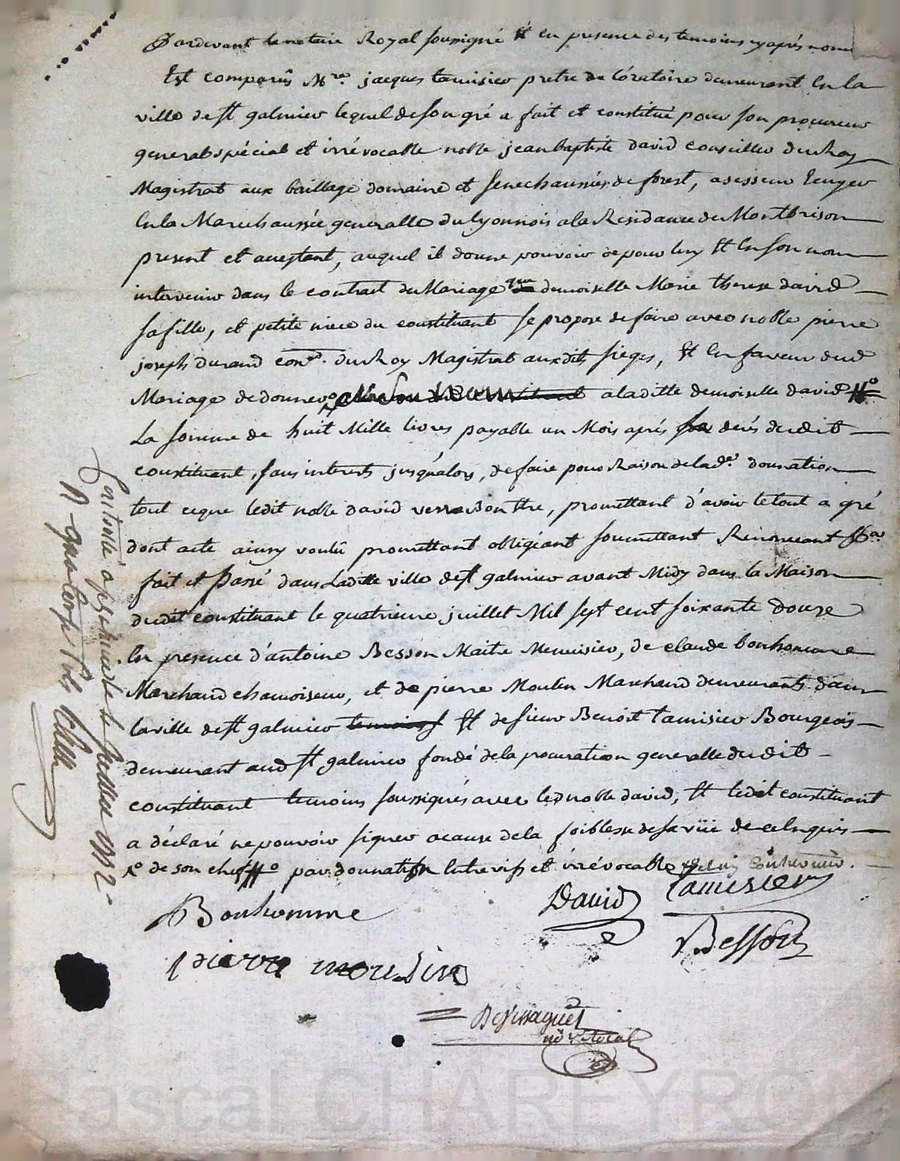 Pardevant le notaire Royal soussigné et en presence des temoins cyaprés nom
Est comparu Mre. jacques tamisier pretre de l'oratoire demeurant En la
ville de st galmier lequel de son gré a fait et constitué pour son procureur
general spécial et irrévocable noble jean baptiste david conseiller du Roy
Magistrat aux bailliage domaine et senechaussée de forest, asesseur Ecuyer
En la Marechaussée generalle du lyonnois a la Residance de Montbrison
present et acceptant, auquel il donne pouvoir de pour luy et En son nom
intervenir dans le contrat du Mariage que demoiselle Marie therese david
sa fille, et petite niece du constituant se propose de faire avec noble pierre
joseph durand coner. du Roy Magistrat auxdits sieges, et En faveur dud
Mariage de donner a laditte demoiselle david #o
La somme de huit Mille livres payable un Mois aprés decés dudit
constituant, sans interets jusqu'alors, de faire pour Raison de lade. donnation
tout ce que ledit noble david verra Bon être, promettant d'avoir le tout a gré
dont acte ainsy voulu promettant obligeant soumettant Renonceant
fait et Passé dans Laditte ville de st galmier avant Midy dans la Maison
dudit constituant le quatrieme juillet Mil sept cent soixante douze
En presence d'antoine Besson Maitre Menuisier, de claude bonhomme
Marchand chamoiseur, et de pierre Moulin Marchand demeurants dans
la ville de st galmier temoins et de sieur Benoit tamisier Bourgeois
demeurant aud st galmier fondé de la procuration generalle dudit
constituant temoins soussignés avec led noble david, et ledit constituant
a déclaré ne pouvoir signer a cause de la foiblesse de sa vüe de ce Enquis
de son chef #o par donnation Entre vifs et irrévocable
David Tamisier
Bonhomme
Besson
pierre moulin
Pascal CHAREYRON